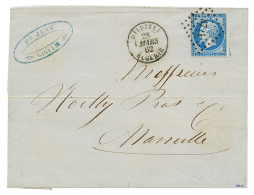 DJIDJELI
28
MARS
62
ALGERIE
Messieurs
Noilly Prat & C
Marseille